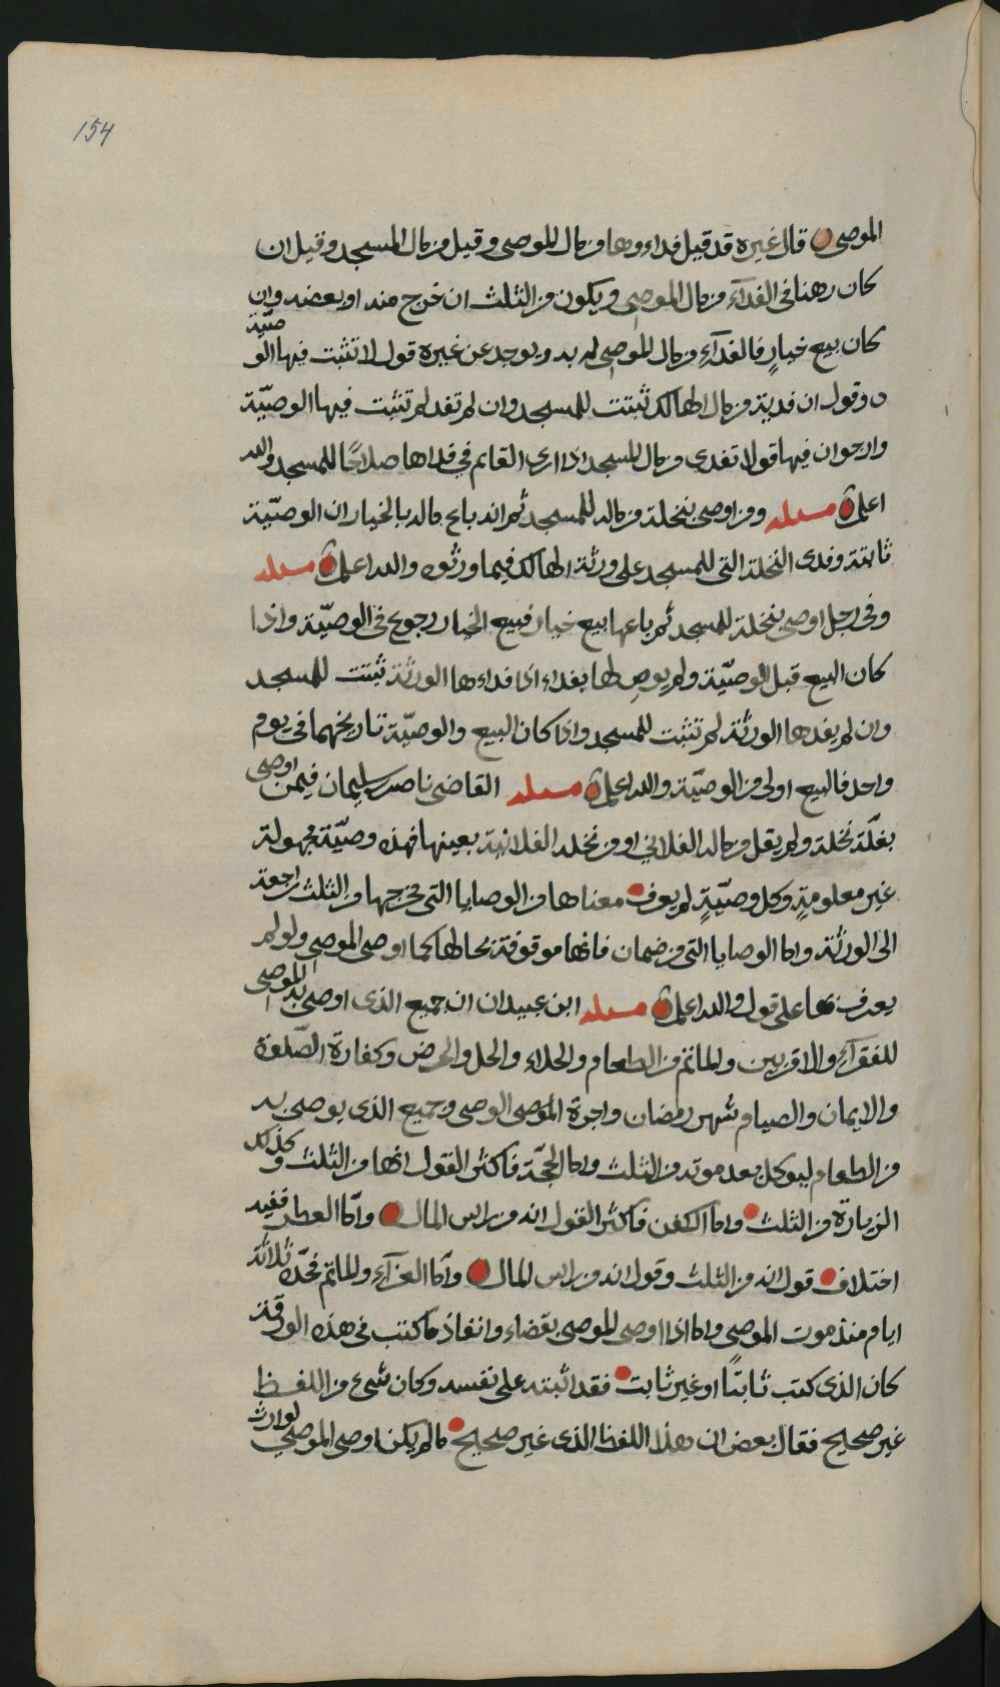 154
الموصى قال غيره قد قيل فداءوها من مال الموصى وقيل من مال المسجد وقيل ان
كان رهنا فى الفدآء من مال الموصى ويكون من الثلث ان خرج منه او بعضه وان
كان بيع خيارٍ فالفدآء من مال الموصى له به ويوجد عن غيره قول لا تثبت فيها الوصيّة
وقول ان فدية من مال الهالك ثبتت للمسجد وان لم تفد لم تثبت فيها الوصيّة
وارجو ان فيها قولا تفدى من مال المسجد اذا ارى القايم فى فداها صلاحًا للمسجد والله
اعلم مسئله ومن اوصى بنخلة من ماله للمسجد ثم انه باع ماله بالخيار ان الوصيّة
ثابتة وفدى النخلة التى للمسجد على ورثة الهالك فيما ورثوه والله اعلم مسئله
وفى رجل اوصى بنخلة للمسجد ثم باعها بيع خيار فبيع الخيار رجوع فى الوصيّة واذا
كان البيع قبل الوصيّة ولم يوصِ لها بفداء اذا فداءها الورثة ثبتت للمسجد
وان لم يفدها الورثة لم تثبت للمسجد واذا كان البيع والوصيّة تاريخهما فى يوم
واحد فالبيع اولى من الوصيّة والله اعلم مسئله القاضى ناصر بن سليمان فيمن اوصى
بغلّة نخلة ولم يقل من ماله الفلانى او من نخله الفلانية بعينها فهذه وصيّة مجهولة
غير معلومةٍ وكل وصيّةٍ لم يعرف معناها من الوصايا التى مخرجها من الثلث راجعة
الى الورثة واما الوصايا التى من ضمان فانها موقوفة بحالها كما اوصى الموصى ولو لم
يعرف على قول والله اعلم مسئله ابن عبيدان ان جميع الذى اوصى به الموصى
للفقرآء والاقربين والماتم من الطعام والحلاء والحل والحرض وكفارة الصّلوة
والايمان والصيام شهر رمضان واجرة الموصى الوصى وجميع الذى يوصى به
من الطعام ليوكل بعد موته من الثلث واما الحجّة فاكثر القول انها من الثلث وكذلك
الزيارة من الثلث واما الكفن فاكثر القول انه من راس المال وامّا العطر ففيه
اختلاف قول انه من الثلث وقول انه من راس المال وامّا العزآء والماتم فحدّه ثلاثة
ايام منذ موت الموصى واما اذا اوصى الموصى بقضاء وانفاذ ما كتب فى هذه الورقة
كان الذى كتب ثابتًا او غير ثابت فقد اثبته على نفسه وكان شىء من اللفظ
غير صحيح فقال بعض ان هذا اللفظ الذى غير صحيح مالم يكن اوصى الموصى لوارث